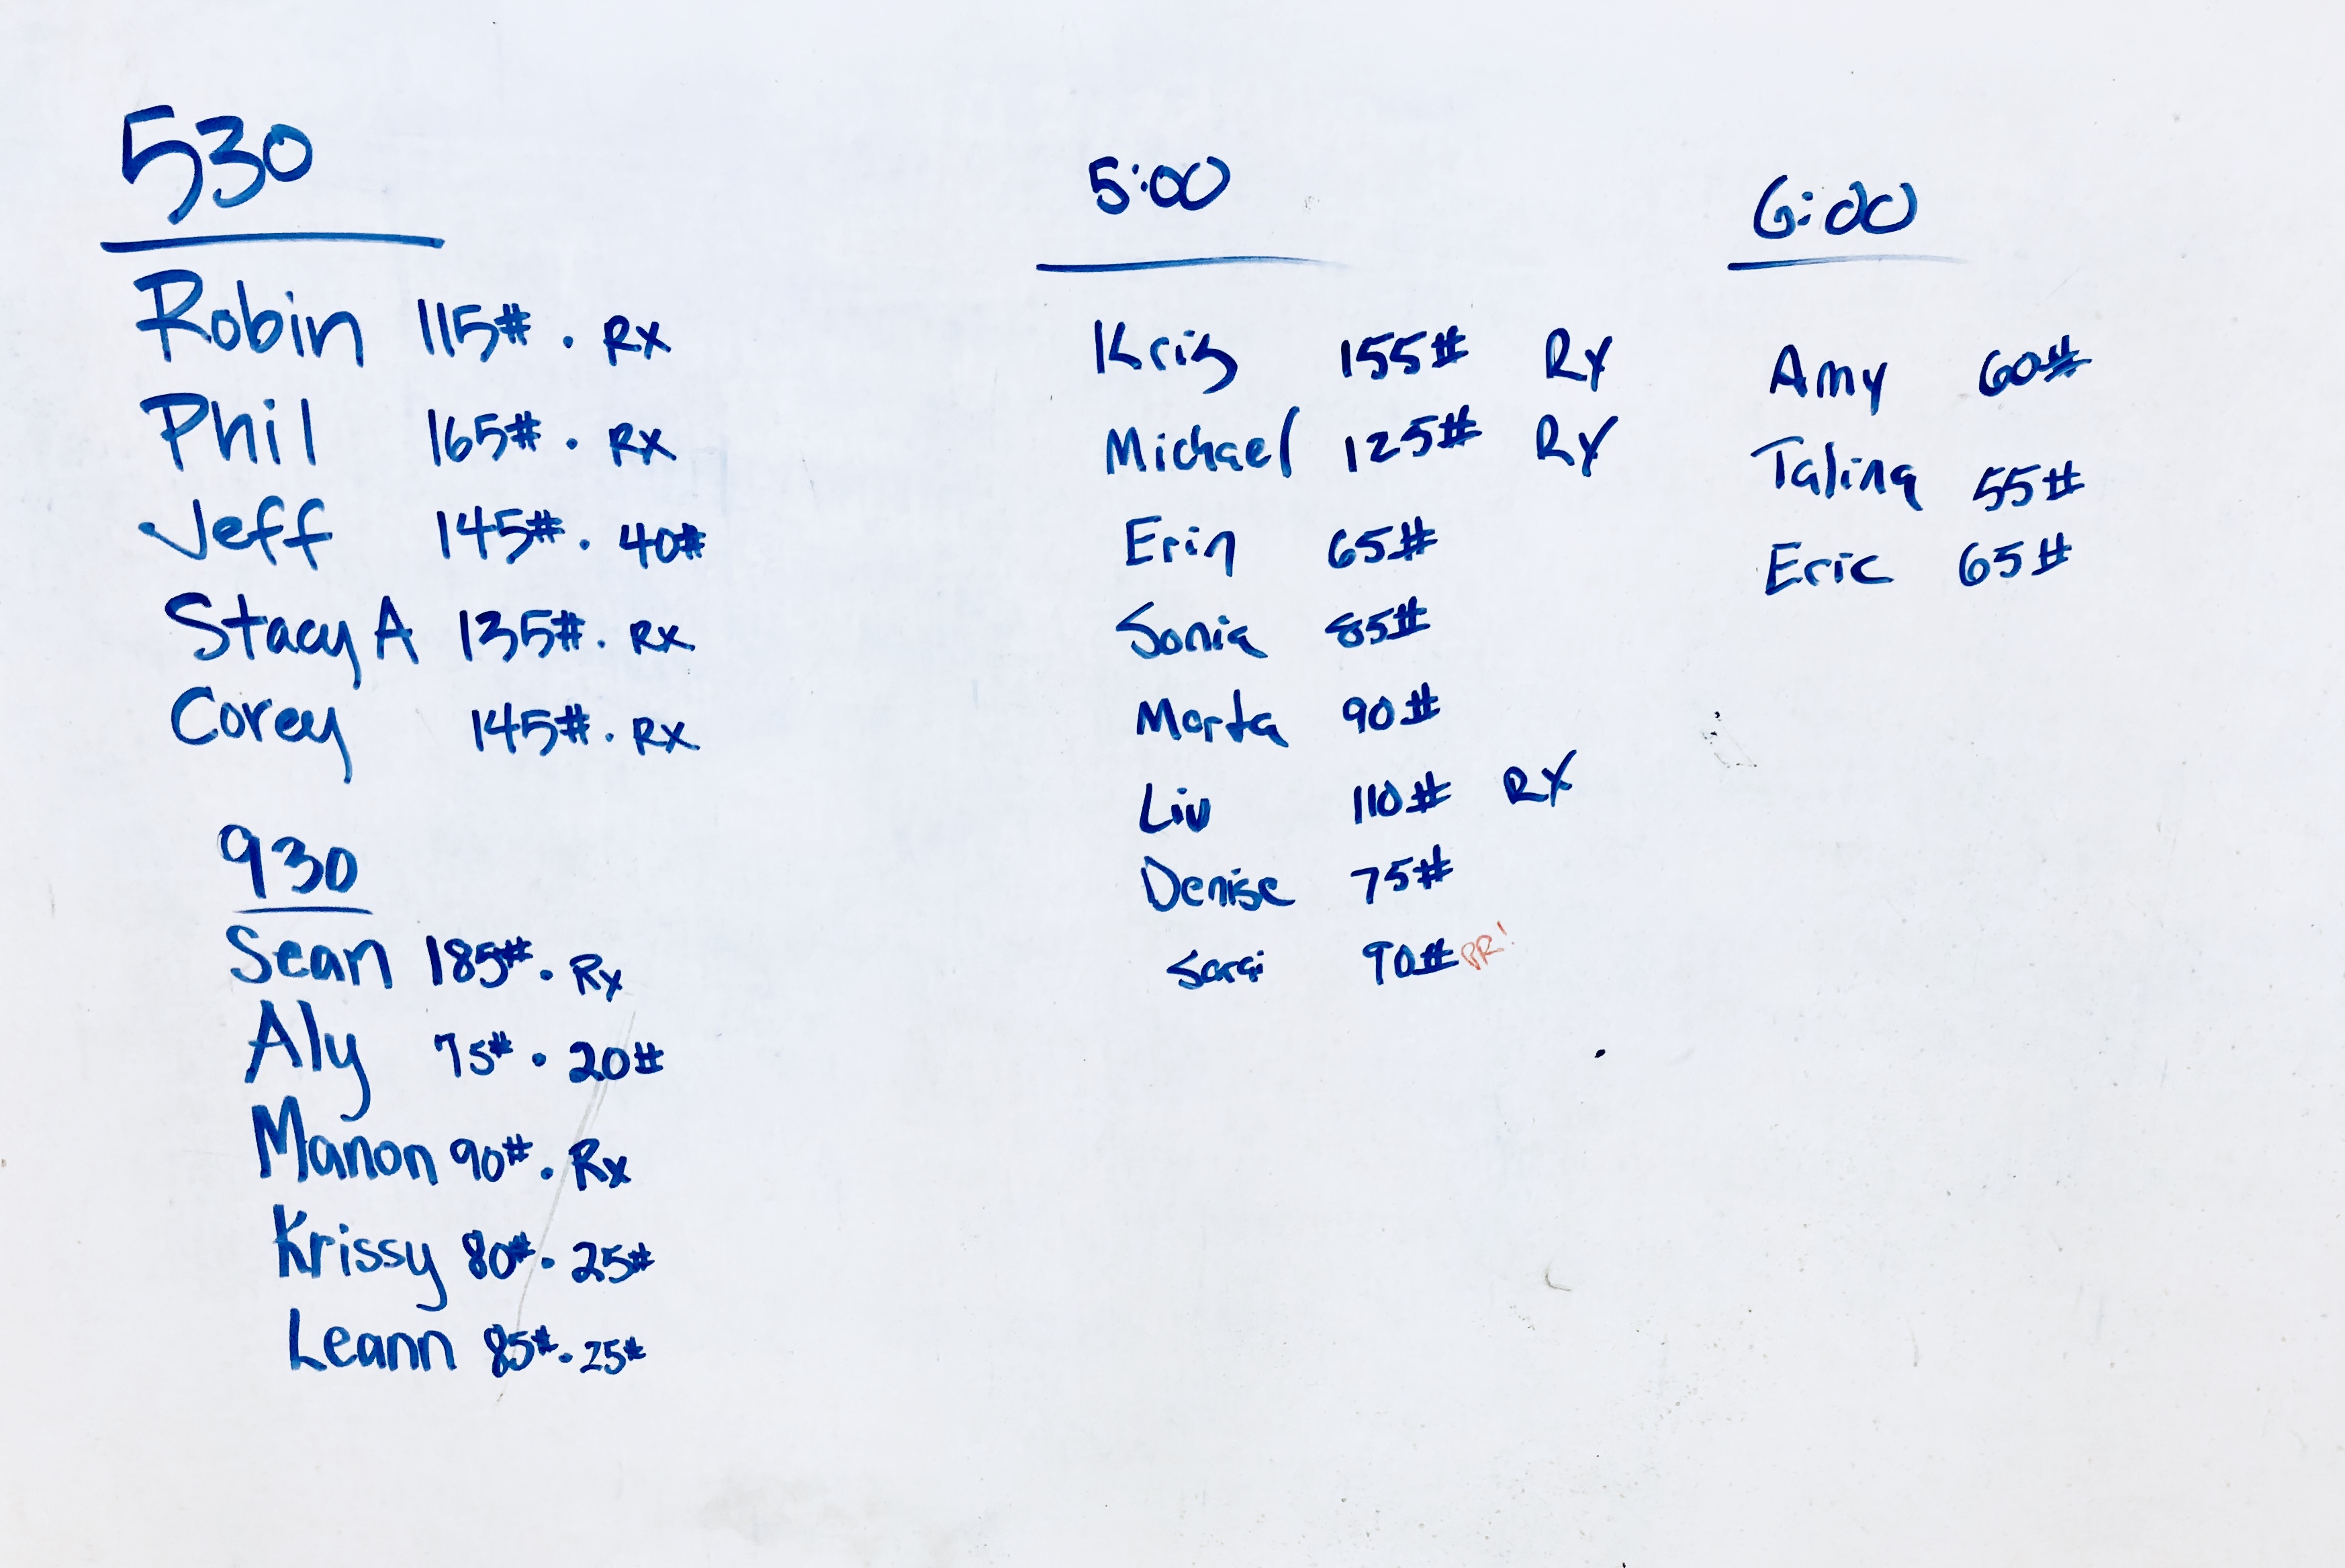 530
Robin 115# . RX
Phil 165# . RX
Jeff 145# . 40#
Stacy A 135# . RX
Corey 145# . RX
930
Sean 185# . Rx
Aly 75# . 20#
Manon 90# . Rx
Krissy 80# . 25#
Leann 85# . 25#
5:00
Kris 155# RX
Michael 125# RX
Erin 65#
Sonia 85#
Marta 90#
Liv 110# RX
Denise 75#
90# PR!
6:00
Amy 60#
Talina 55#
Eric 65#